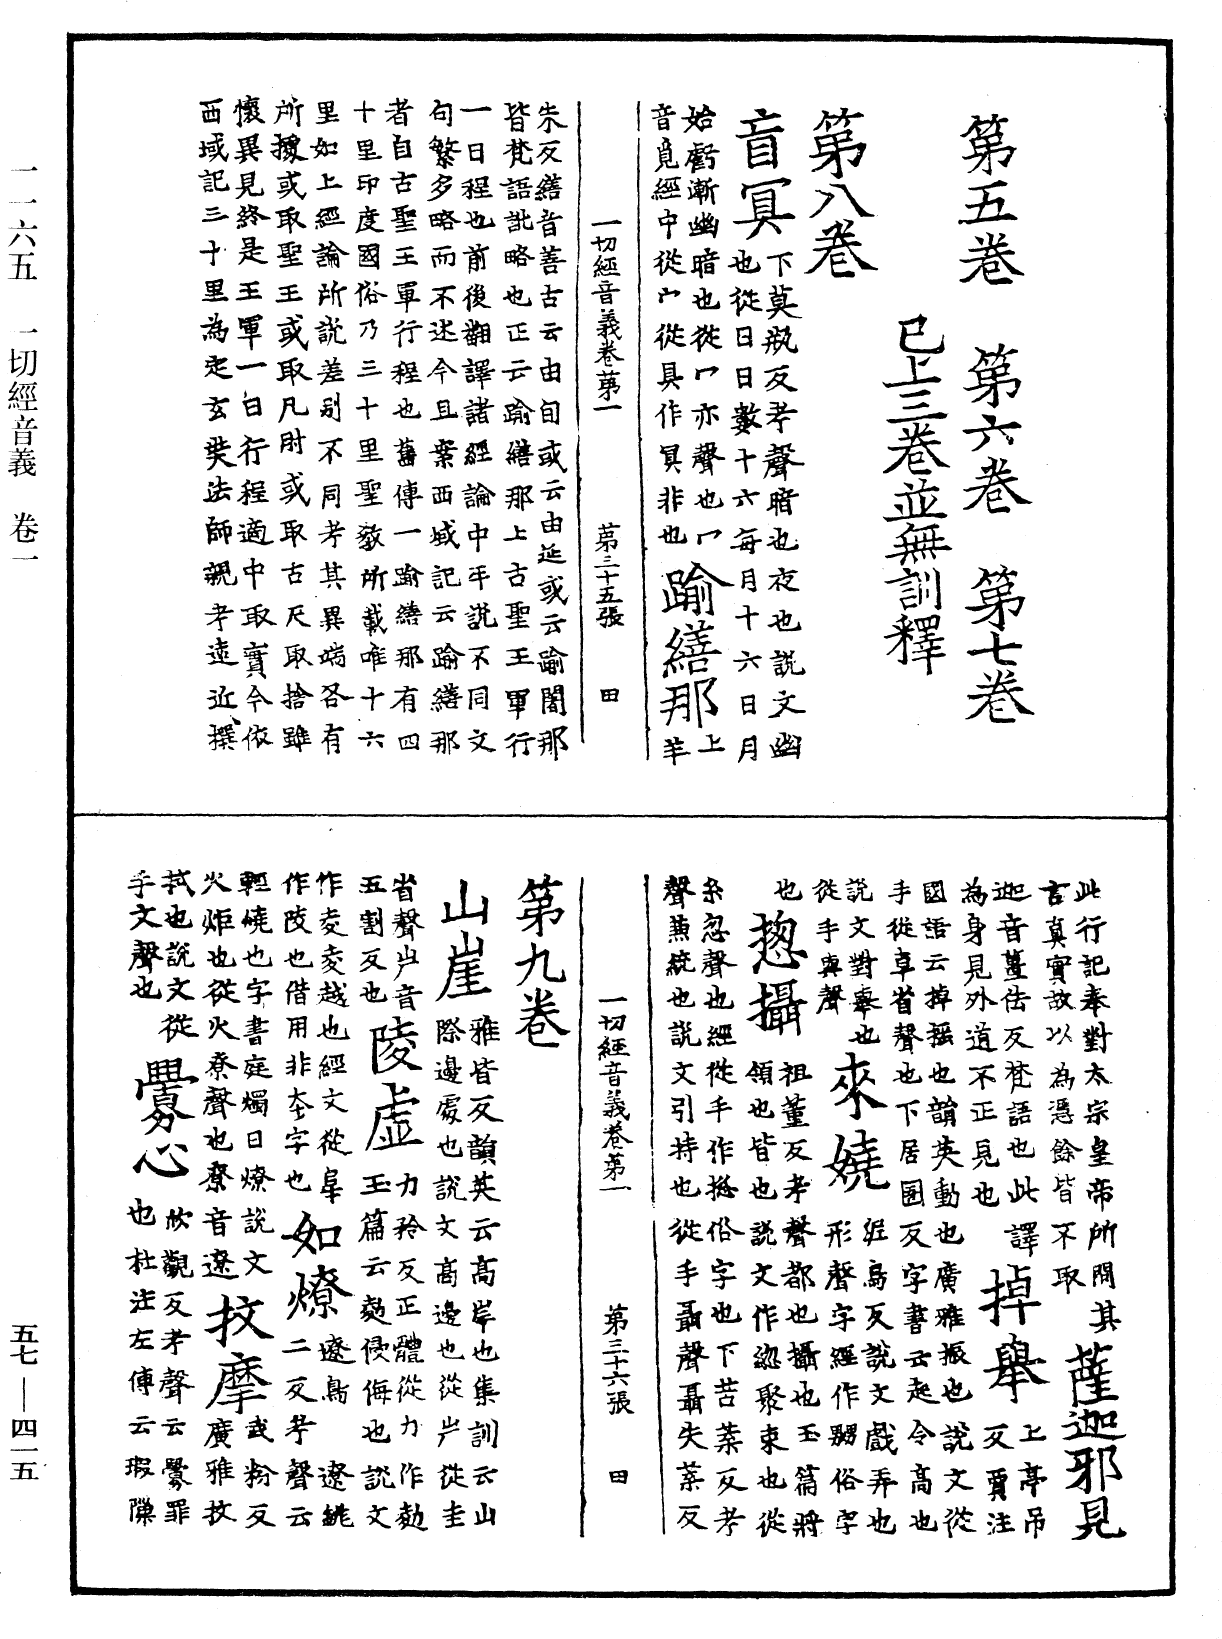 第五卷　第六卷　第七卷
已上三卷並無訓釋
第八卷
盲冥
下莫瓶反考聲暗也夜也說文幽
也從日日數十六每月十六日月
始虧漸幽暗也從冖亦聲也冖
音覓經中從宀從具作冥非也
踰繕那
上
羊
一切經音義卷第一　第三十五張　田
朱反繕音善古云由旬或云由延或云踰闍那
皆梵語訛略也正云踰繕那上古聖王軍行
一日程也前後翻譯諸經論中平說不同文
句繁多略而不述今且案西域記云踰繕那
者自古聖王軍行程也舊傳一踰繕那有四
十里印度國俗乃三十里聖教所載唯十六
里如上經論所說差別不同考其異端各有
所據或取聖王或取凡肘或取古尺取捨雖
懷異見終是王軍一日行程適中取實今依
西域記三十里為定玄奘法師親考遠近撰
此行記奉對太宗皇帝所問其
言真實故以為憑餘皆不取
薩迦邪見
迦音薑佉反梵語也此譯
為身見外道不正見也
掉舉
上亭吊
反賈注
國語云掉搖也韻英動也廣雅振也說文從
手從卓省聲也下居圄反字書云起令高也
說文對舉也
從手與聲
來嬈
泥鳥反說文戲弄也
形聲字經作嬲俗字
也
揔攝
祖董反考聲都也攝也玉篇將
領也皆也說文作總聚束也從
糸忽聲也經從手作揔俗字也下苫葉反考
聲兼統也說文引持也從手聶聲聶失葉反
一切經音義卷第一　第三十六張　田
第九卷
山崖
雅皆反韻英云高岸也集訓云山
際邊處也說文高邊也從屵從圭
省聲屵音
五割反也
陵虛
力矜反正體從力作勎
玉篇云勎侵侮也說文
作夌夌越也經文從阜
作陵也借用非本字也
如燎
遼鳥　遼銚
二反考聲云
輕燒也字書庭燭日燎說文
火炬也從火尞聲也尞音遼
抆摩
武粉反
廣雅抆
拭也說文從
手文聲也
釁心
欣覲反考聲云釁罪
也杜注左傳云瑕隙
一一六五　一切經音義　卷一
五七—四一五